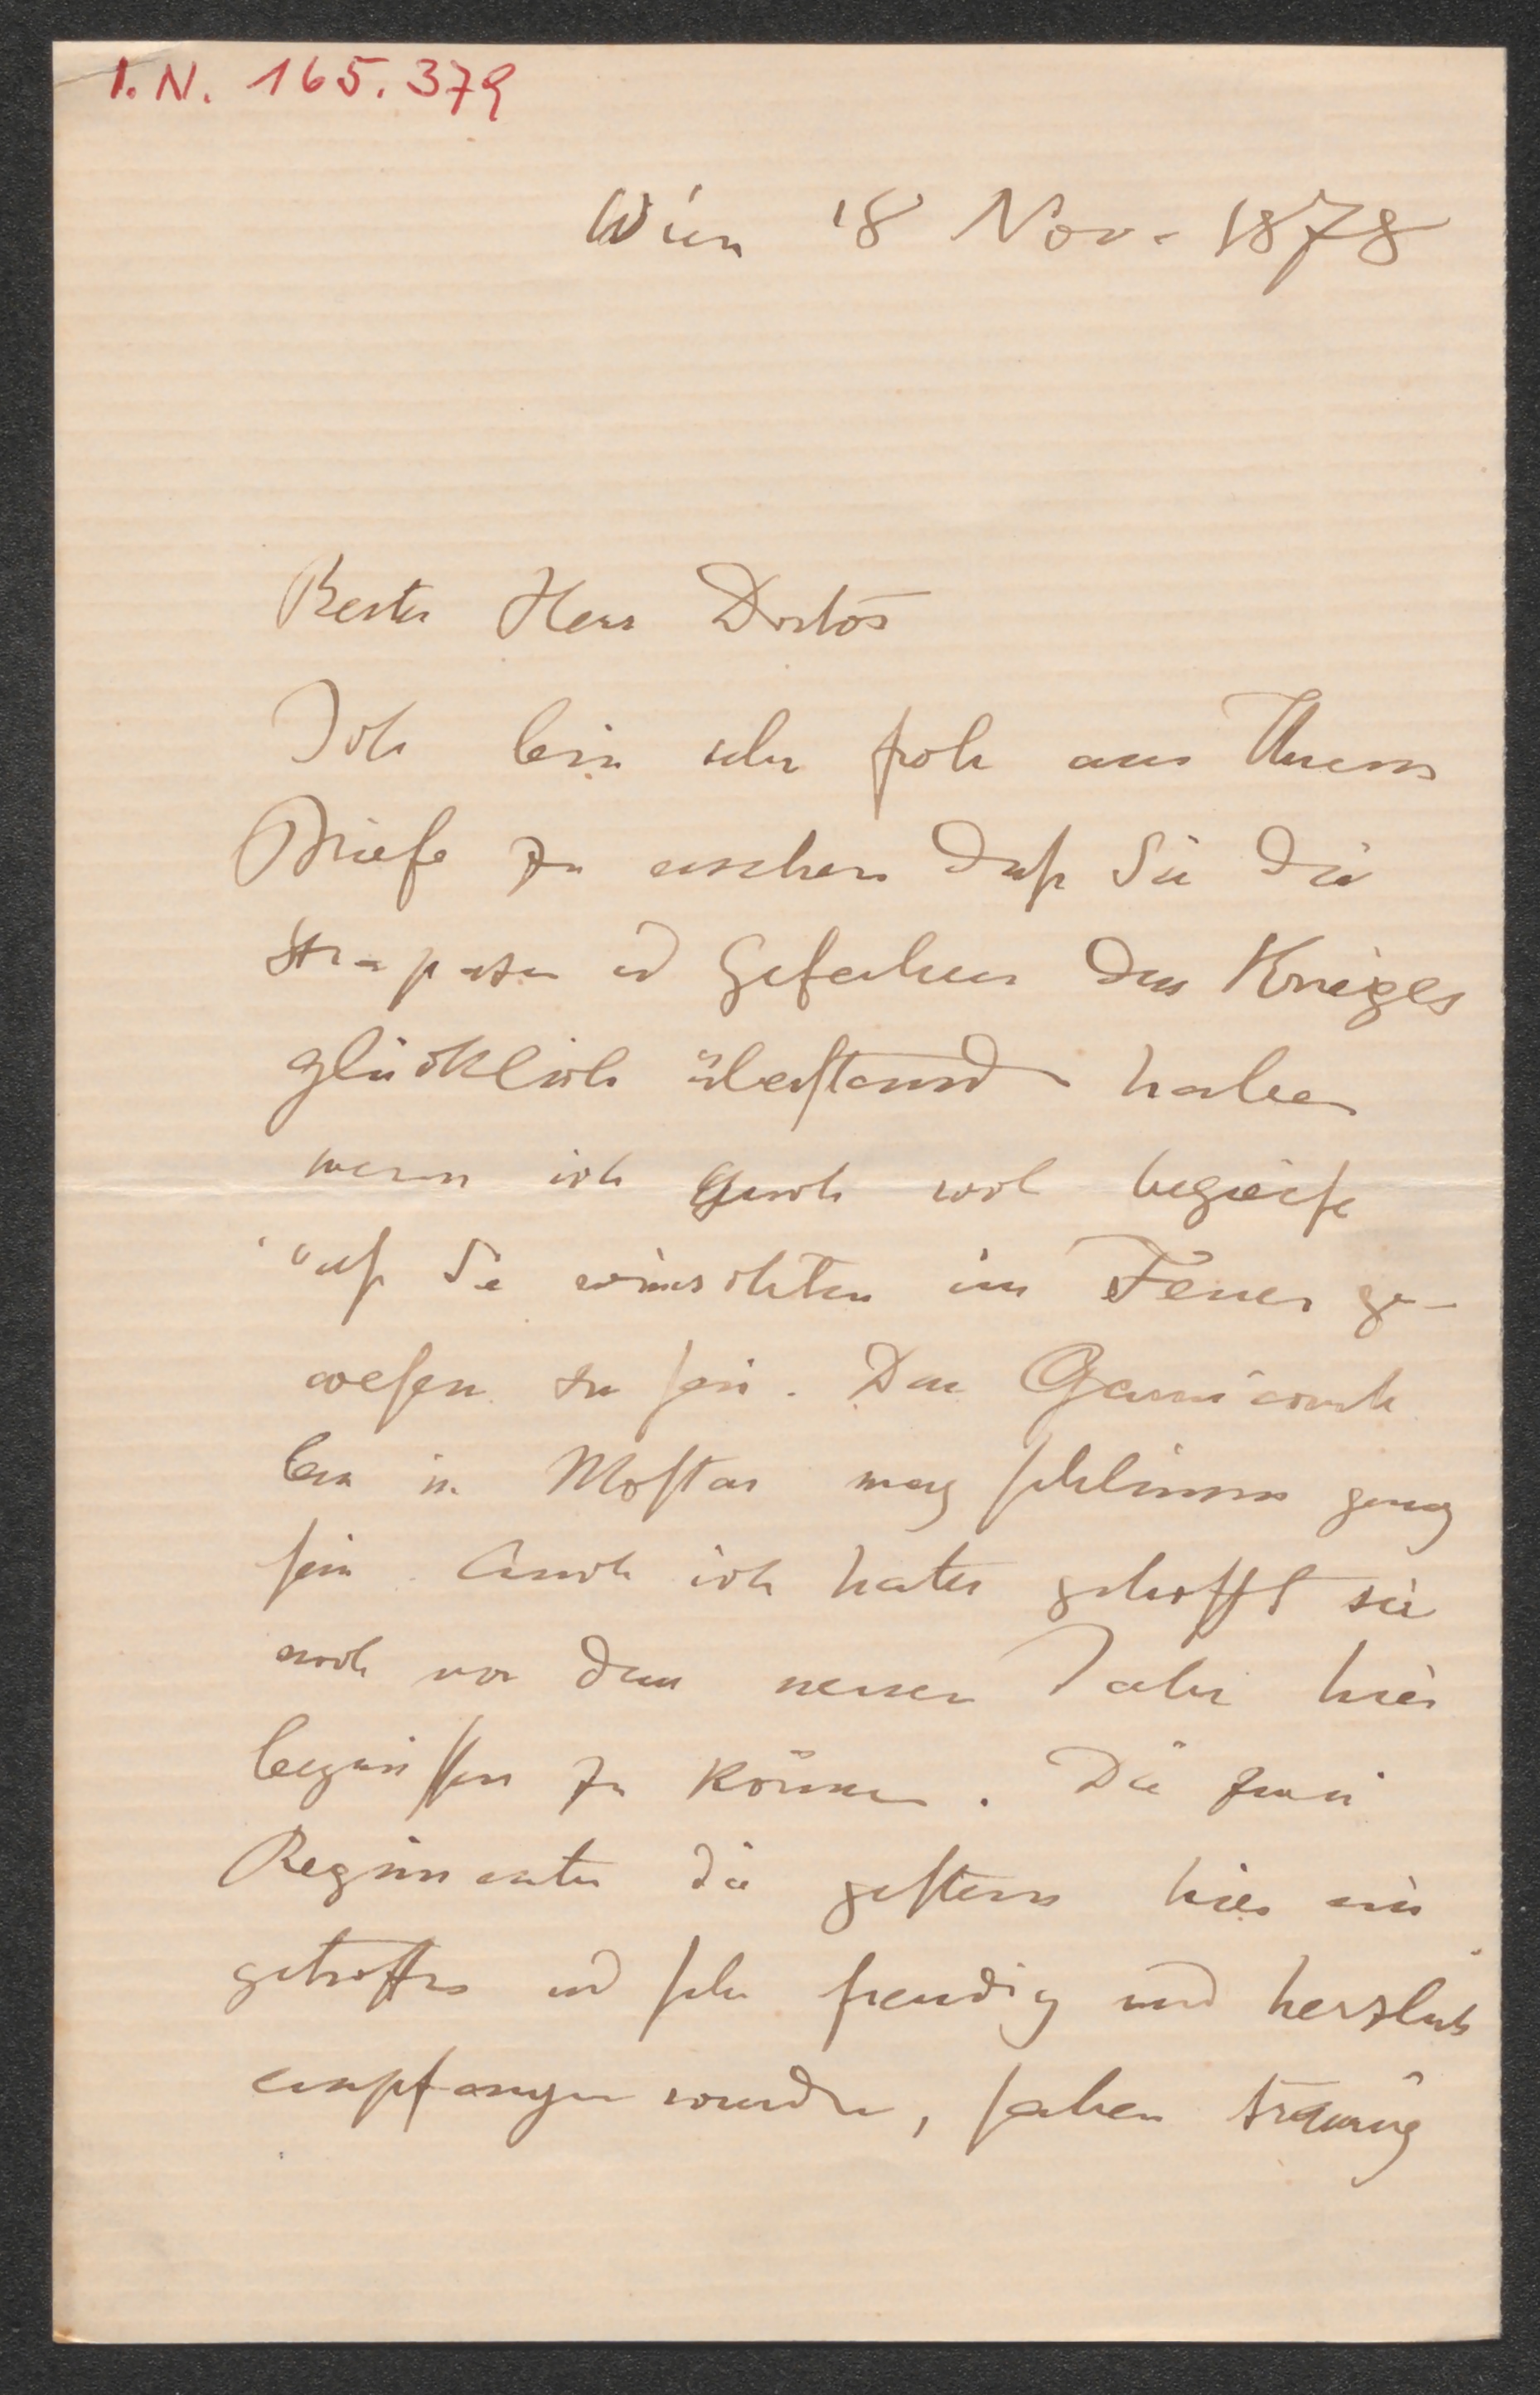 I. N. 165.379
Wien 18 Nov. 1878
Bester Herr Doctor
Ich bin sehr froh aus Ihrem
Briefe zu ersehen daß Sie die
Strapazen und Gefahren des Krieges
glücklich überstanden haben
wenn ich auch wol begreife
daß Sie wünschten im Feuer ge-
wesen zu sein. Das
in Mostar mag schlimm genug
sein. Auch ich hatte gehofft sie
noch vor dem neuen Jahr hier
begrüssen zu können. Die zwei
Regimenter die gestern hier ein
getroffen und sehr freudig und herzlich
empfangen wurden, sahen traurig